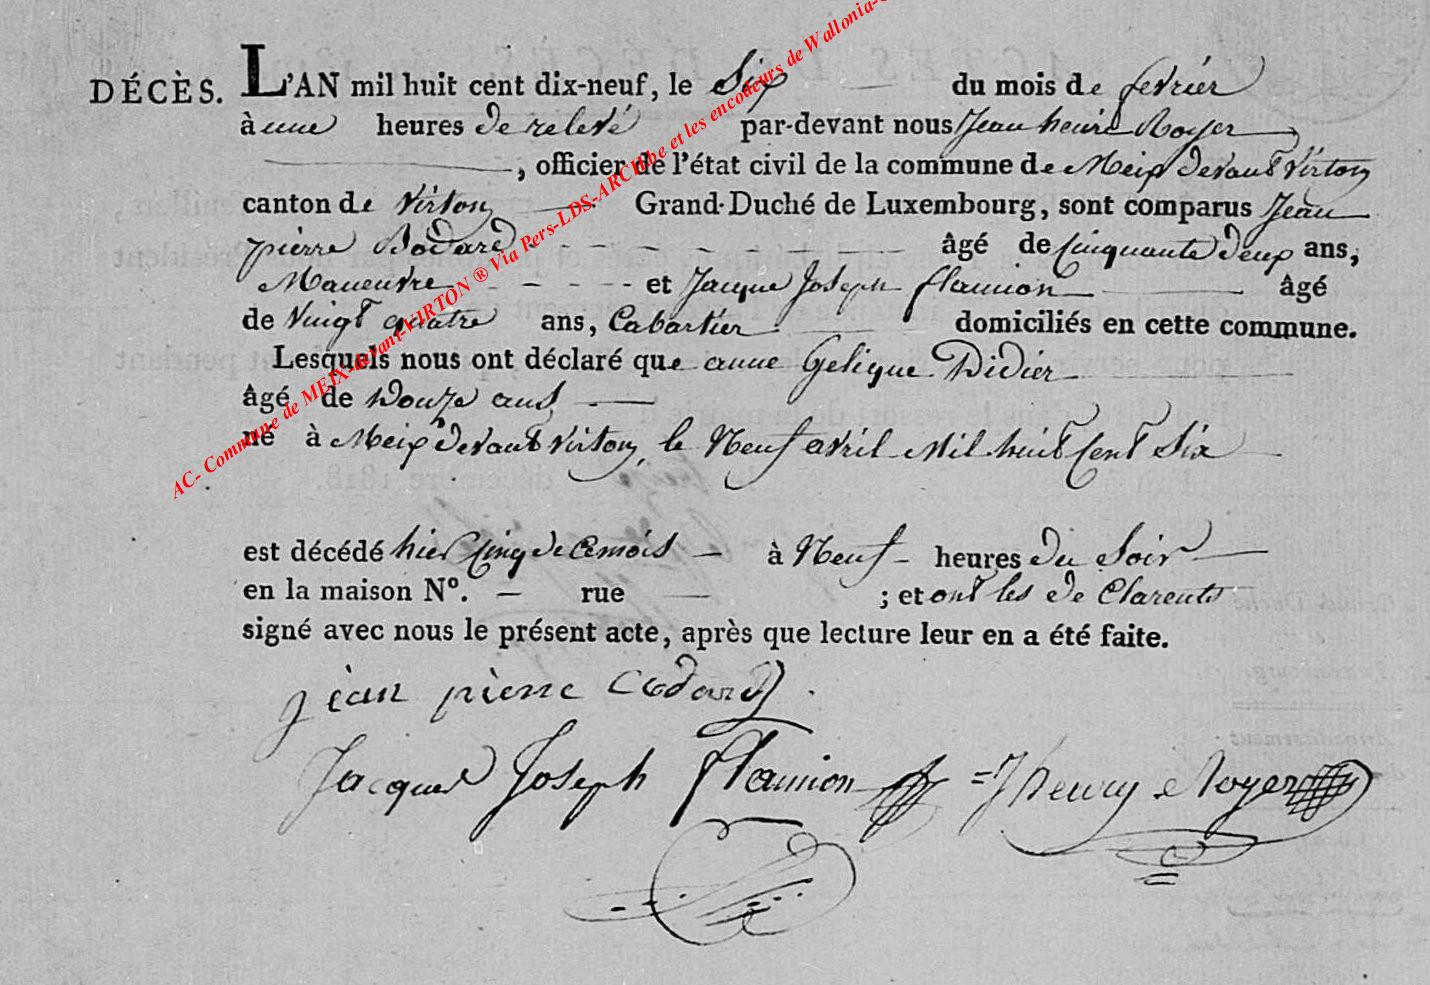 DÉCÈS. L'AN mil huit cent dix-neuf, le Six du mois de fevrier
à une heures de relevé par-devant nous Jean henri Royer
, officier de l'état civil de la commune de Meix devant Virton
canton de Virton Grand-Duché de Luxembourg, sont comparus Jean
pierre Bodard âgé de Cinquante deux ans,
Maneuvre et Jacque Joseph flamion âgé
de Vingt quatre ans, Cabartier domiciliés en cette commune.
Lesquels nous ont déclaré que anne Gelique Didier
âgé de Douze ans
né à Meix devant Virton, le Neuf avril Mil huit Cent Six
est décédé hier Cinq de Cemois à Neuf heures du Soir
en la maison N°. — rue — ; et ont les de Clarents
signé avec nous le présent acte, après que lecture leur en a été faite.
jean pierre Codard
Jacques Joseph Flamion = J henry Royer
AC- Commune de MEIX-devant-VIRTON ® Via Pers-LDS-ARCH.be et les encodeurs de Wallonia-